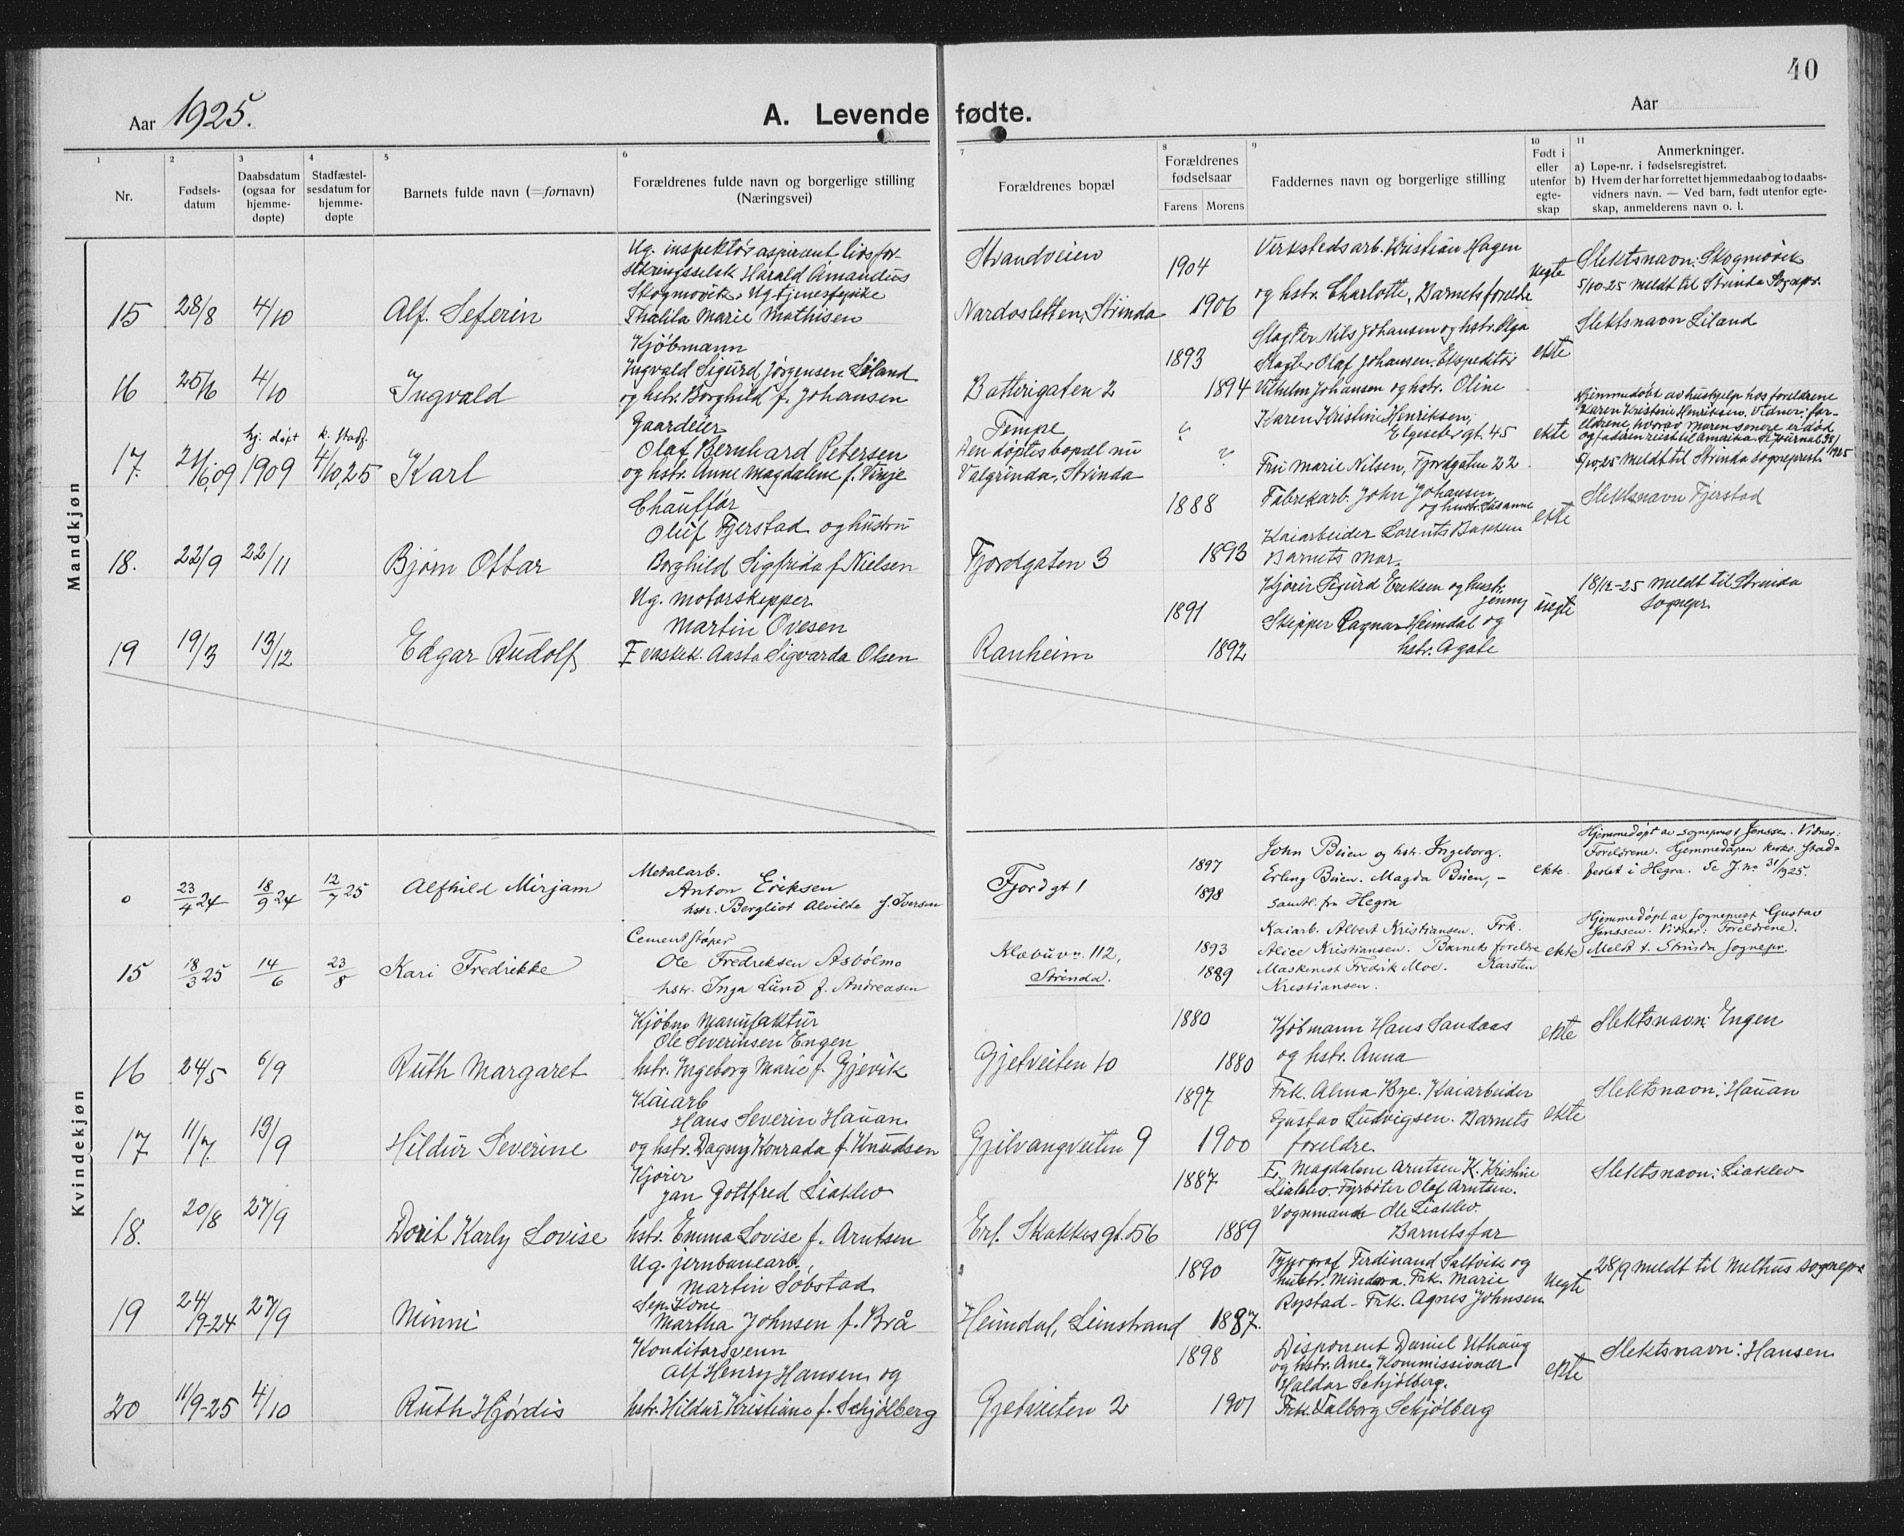 40
Aar 1925.
A. Levende fødte.
Aar
1 2 3 4 5 6 7 8 9 10 11
Nr.
Fødsels-
datum
Daabsdatum
(ogsaa for
hjemme-
døpte)
Stadfæstel-
sesdatum for
hjemme-
døpte
Barnets fulde navn (=fornavn)
Forældrenes fulde navn og borgerlige stilling
(Næringsvei)
Forældrenes bopæl
Forældrenes
fødselsaar
Farens Morens
Faddernes navn og borgerlige stilling
Født i
eller
utenfor
egte-
skap
Anmerkninger.
a) Løpe-nr. i fødselsregistret.
b) Hvem der har forrettet hjemmedaab og to daabs-
vidners navn. — Ved barn, født utenfor egte-
skap, anmelderens navn o. l.
Mandkjøn
15 28/8 4/10 Alf. Seferin
Ug. inspektøraspirant livsfor-
sikringsselsk Harald Amandus
Skogmovik. Ug tjenestepike
Thalila Marie Mathisen
Strandveien
Nardosletten, Strinda
1904
1906
Verkstedsarb. Kristian Hagen
og hstr. Charlotte, Barnets foreldre
uegte
Slektsnavn: Skogmovik
5/10-25 meldt til Strinda Sognepr.
16 25/6 4/10 Ingvald
Kjøbmann
Ingvald Sigurd Jørgensen Liland
og hstr. Borghild f. Johansen
Batterigaten 2
1893
1894
Slagter Nils Johansen og hstr. Olga
Slagter Olaf Johansen. Ekspeditør
Vilhelm Johansen og hstr. Oline
ekte
Slektsnavn Liland
17. 21/6,09 hj. døpt 1909 k. stadf. 4/10,25 Karl
Gaardeier
Olaf Bernhard Petersen
og hstr. Anne Magdalene f. Vinje
Tempe
Den døptes bopæl nu
Valgrinda, Strinda
?
?
Karen Kristine Henriksen,
Elgeseter gt. 45
Fru Marie Nilsen, Fjordgaten 22
ekte
Hjemmedøbt av hushjelp hos foreldrene
Karen Kristine Henriksen. Vidner: for-
eldrene, hvorav moren senere er død
og faderen reist til Amerika. Se journal 38/1925
5/10-25 meldt til Strinda sogneprest
18. 22/9 22/11 Bjørn Ottar
Chauffør
Oluf Fjerstad og hustru
Borghild Sigfrida f Nielsen
Fjordgaten 3
1888
1893
Fabrekarb. John Johansen
og hustr. Susanne
Kaiarbeider Lorents Bakksen
Barnets mor.
ekte
Slektsnavn Fjerstad
19 19/3 13/12 Edgar Rudolf
Ug. motorskipper
Martin Ovesen
Aasta Sigvarda Olsen
Ranheim
1891
1892
Kjører Sigurd Eriksen og hustr.
Jenny
Skipper Ragnar Heimdal og
hstr. Agate
uegte
18/12-25 meldt til Strinda
Sognepr.
Kvindekjøn
0 23/4 24 18/9 24 12/7 25 Alfhild Mirjam
Metalarb.
Anton Eriksen
hstr. Bergliot Alvilde f. Iversen
Fjordgt 1
1897
1898
John Buen og hstr. Ingeborg.
Erling Buen. Magda Buen, –
samtl. fra Hegra
ekte.
Hjemmedøpt av sogneprest Jenssen. Vidner:
Foreldrene. Hjemmedåpen kirks. stad-
festet i Hegra. Se J. nr 31/1925.
15 18/3 25 14/6 23/8 Kari Fredrikke
Cementstøper
Ole Fredriksen Asbølmo
hstr. Inga Lund f. Andreasen
Klæbuv. 112,
Strinda.
1893
1889
Kaiarb. Albert Kristiansen. Frk.
Alice Kristiansen. Barnets foreldre
Maskinist Fredrik Moe. Karsten
Kristiansen.
ekte
Hjemmedøpt av Sogneprest Gustav
Jenssen. Vidner: Foreldrene.
Meldt t. Strinda Sognepr.
16 24/5 6/9 Ruth Margaret
Kjøbm Manufaktur
Ole Severinsen Engen
hstr. Ingeborg Marie f. Gjevik
Gjetveiten 10
1880
1880
Kjøbmann Hans Sandaas
og hstr. Anna
ekte
Slektsnavn: Engen
17 11/7 13/9 Hildur Severine
Kaiarb
Hans Severin Hauan
og hstr. Dagny Konrada f. Knudsen
Gjelvangveiten 9
1897
1900
Frk. Alma Bye. Kaiarbeider
Gustav Ludvigsen. Barnets
foreldre.
ekte
Slektsnavn: Hauan
18. 20/8 27/9 Dorit Karly Lovise
Kjører
Jan Gottfred Liaklev
hstr. Emma Lovise f. Arntsen
Erl. Skakkes gt. 56
1887
1889
Magdalene Arntsen K. Kristine
Liaklev – Fyrbøter Olaf Arntsen.
Vognmand Ole Liaklev.
Barnets far
Slektsnavn: Liaklev
19 24/9-24 27/9 Minni
Ug. jernbanearb.
Martin Søbstad
Sep. Kone
Martha Johnsen f. Brå
Heimdal, Leinstrand
1890
1887.
Typograf Ferdinand Saltvik og
hustr. Mindora. Frk. Marie
Rystad – Frk. Agnes Johnsen
uegte
28/9 meldt til Melhus sognepr.
20 11/9-25 4/10 Ruth Hjørdis
Konditorsvenn
Alf Henry Hansen og
hstr. Hildur Kristiane f. Schjølberg
Gjetveiten 2
1898
1901
Disponent Daniel Uthaug
og hstr. Ane. Kommissionær
Haldor Schjølberg.
Frk. Valborg Schjølberg
ekte
Slektsnavn: Hansen